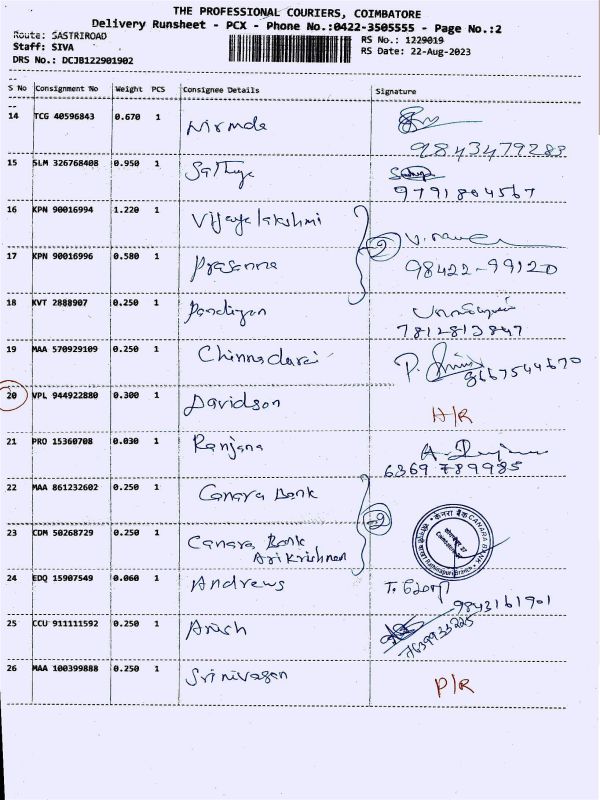 THE PROFESSIONAL COURIERS, COIMBATORE
Delivery Runsheet - PCX - Phone No.:0422-3505555 - Page No.:2
Route: SASTRIROAD
Staff: SIVA
DRS No.: DCJB122901902
RS No.: 1229019
RS Date: 22-Aug-2023
S No Consignment No Weight PCS Consignee Details Signature
14 TCG 40596843 0.670 1 Nirmda
9843479283
15 SLM 326768408 0.950 1 Sathya
9791804567
16 KPN 90016994 1.220 1 Vijayalakshmi
2
17 KPN 90016996 0.580 1 Prasanna 98422-99120
18 KVT 2888907 0.250 1 Pandiyan
7812813847
19 MAA 570929109 0.250 1 Chinnadurai
8667544670
20 VPL 944922880 0.300 1 Davidson H/R
21 PRO 15360708 0.030 1 Ranjana
6369789985
22 MAA 861232602 0.250 1 Canara Bank
2
23 CDM 50268729 0.250 1 Canara Bank
Arikrishnan
केनरा बैंक CANARA BANK
24 EDQ 15907549 0.060 1 Andrews
9843161901
25 CCU 911111592 0.250 1 Arish
7639933225
26 MAA 100399888 0.250 1 Srinivasan P/R